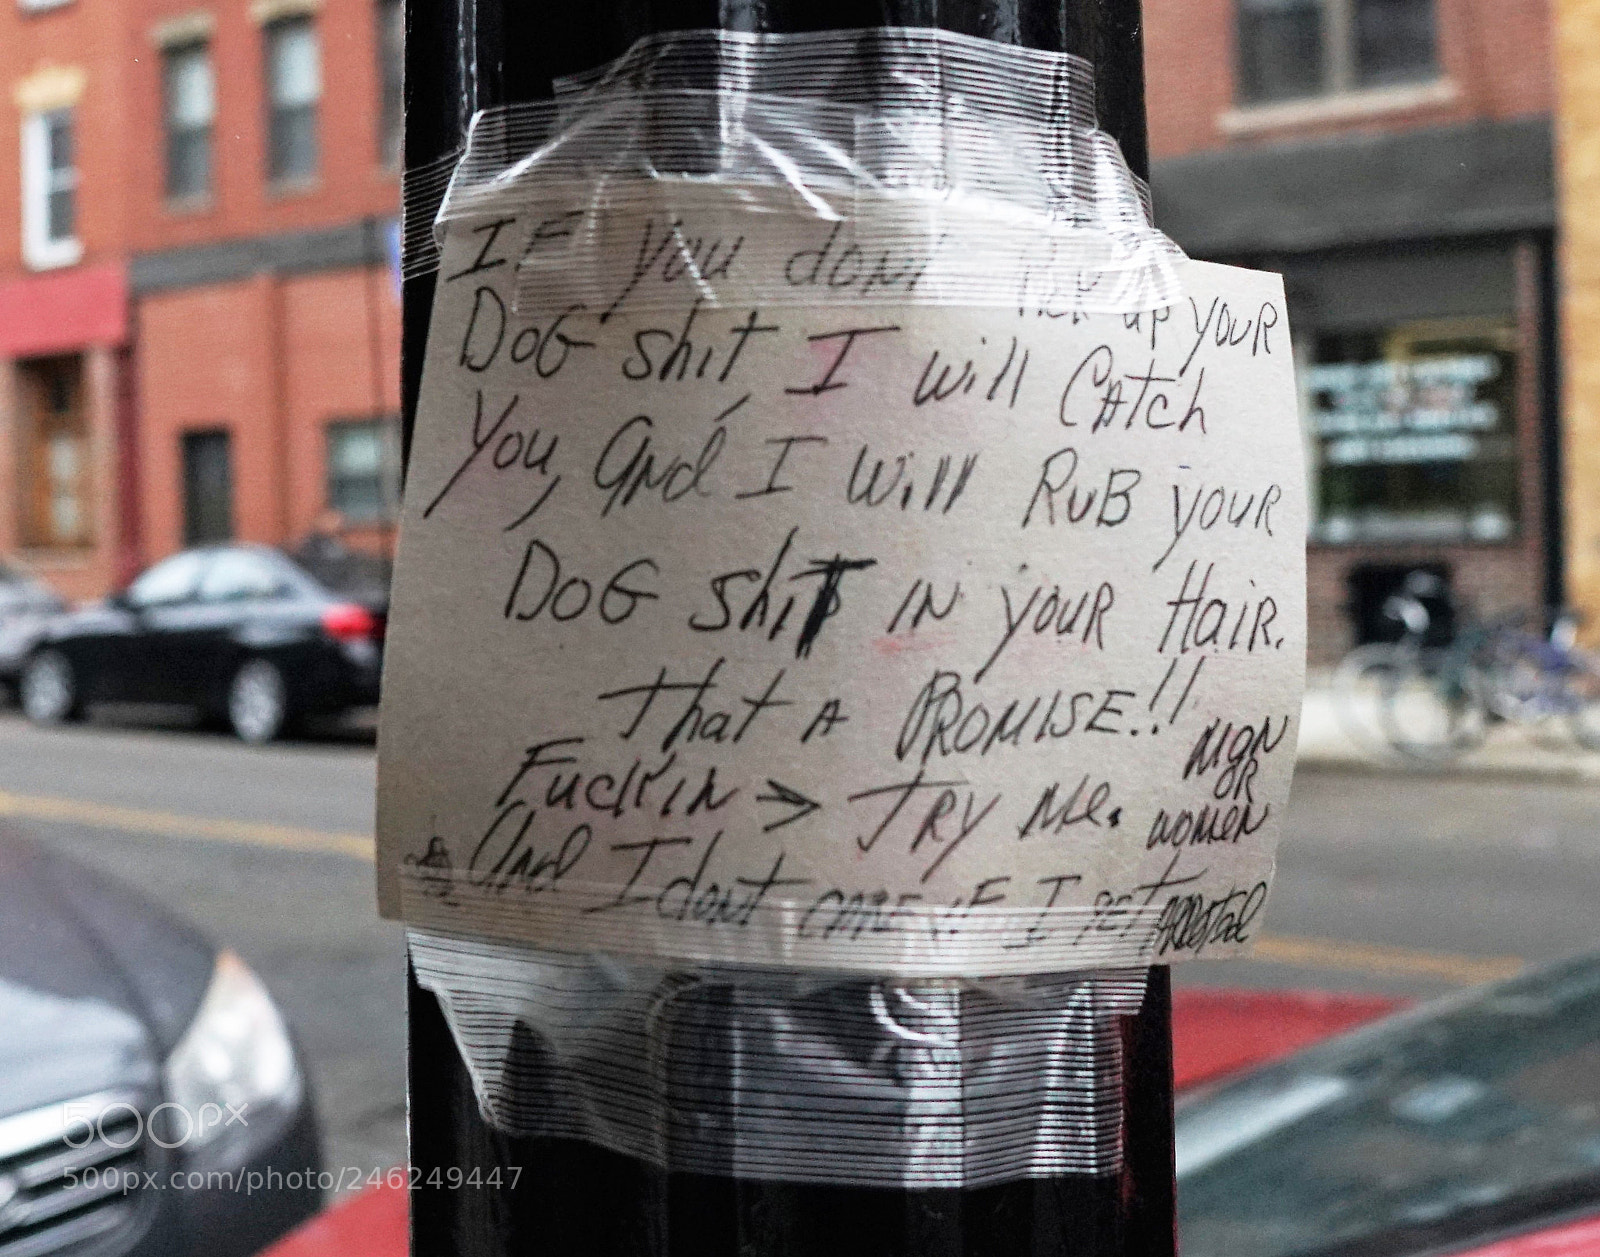 IF you dont Pick up YOUR
DOG shit I will CAtch
You, And I Will RUB YOUR
DOG shit IN YOUR HaiR.
That A PROMISE!!
Fuck'in > TRY Me. MAN
OR
WOMEN
And I dont CARE iF I get ARRested
500px
500px.com/photo/246249447